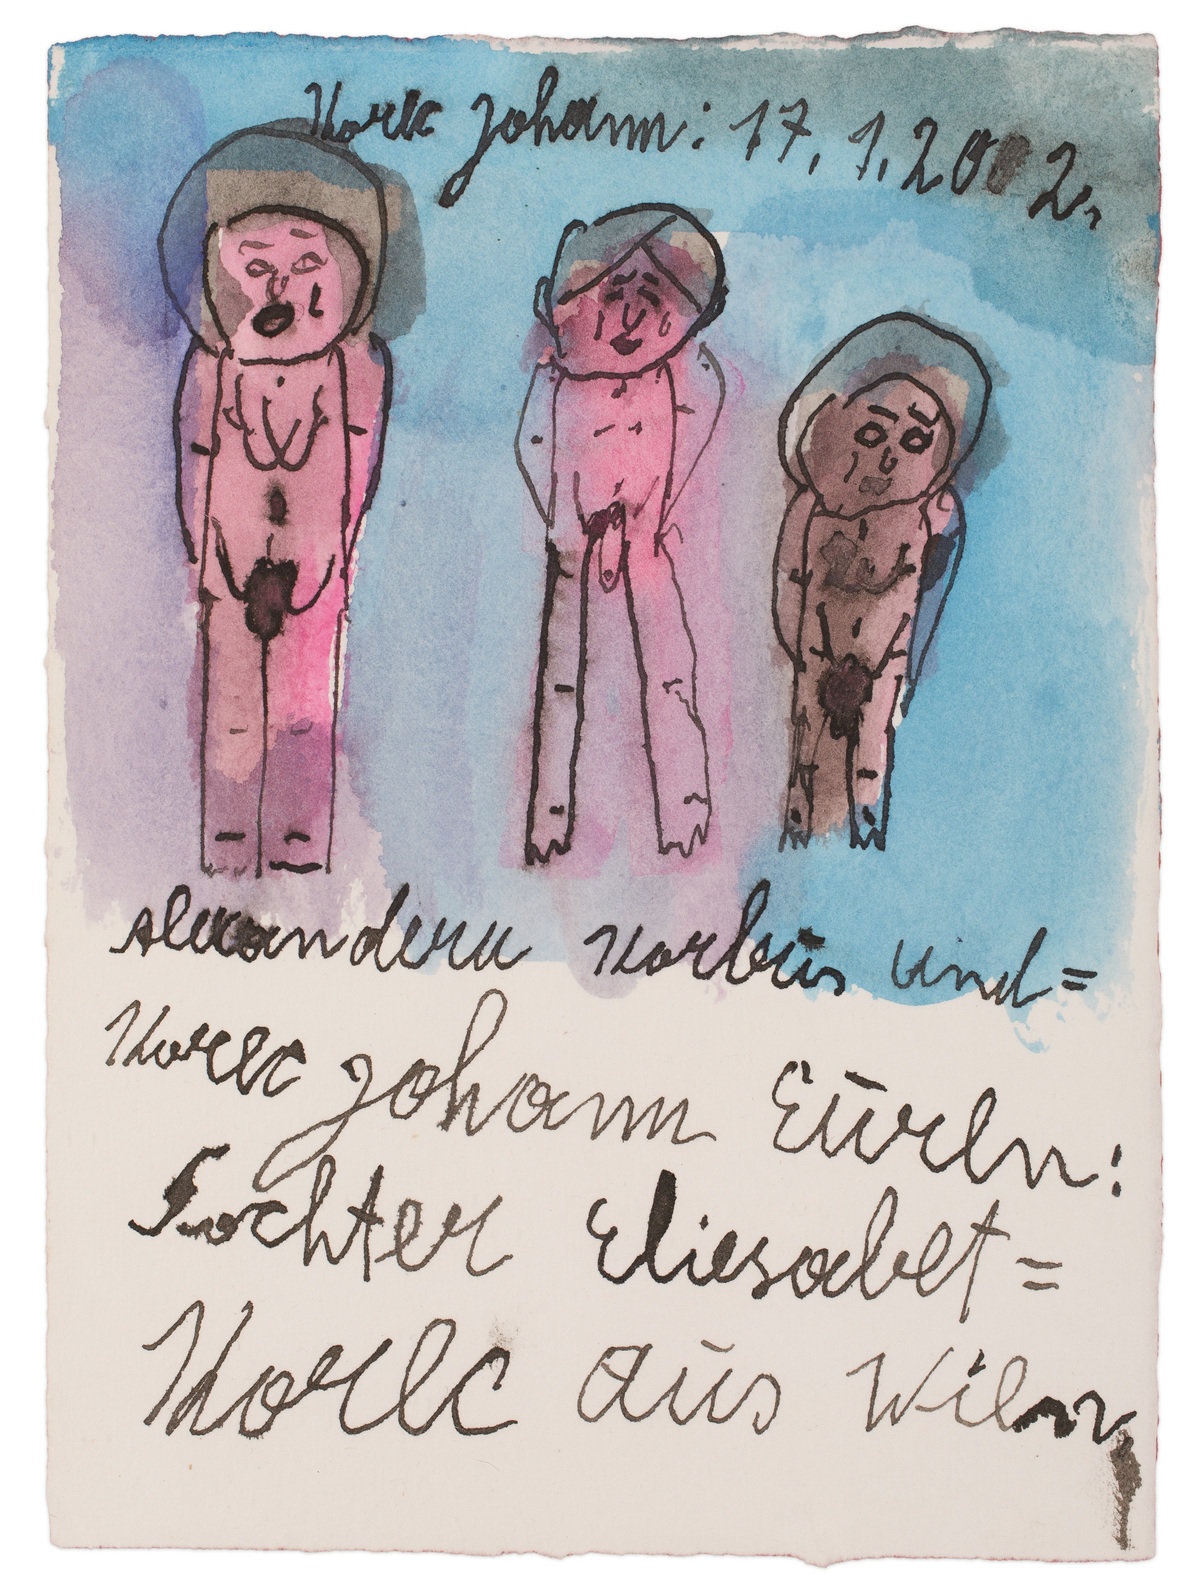 Korec Johann: 17.1.2002.
Korbus und=
Korec Johann
Tochter Eliesabet=
Korec aus Wien,